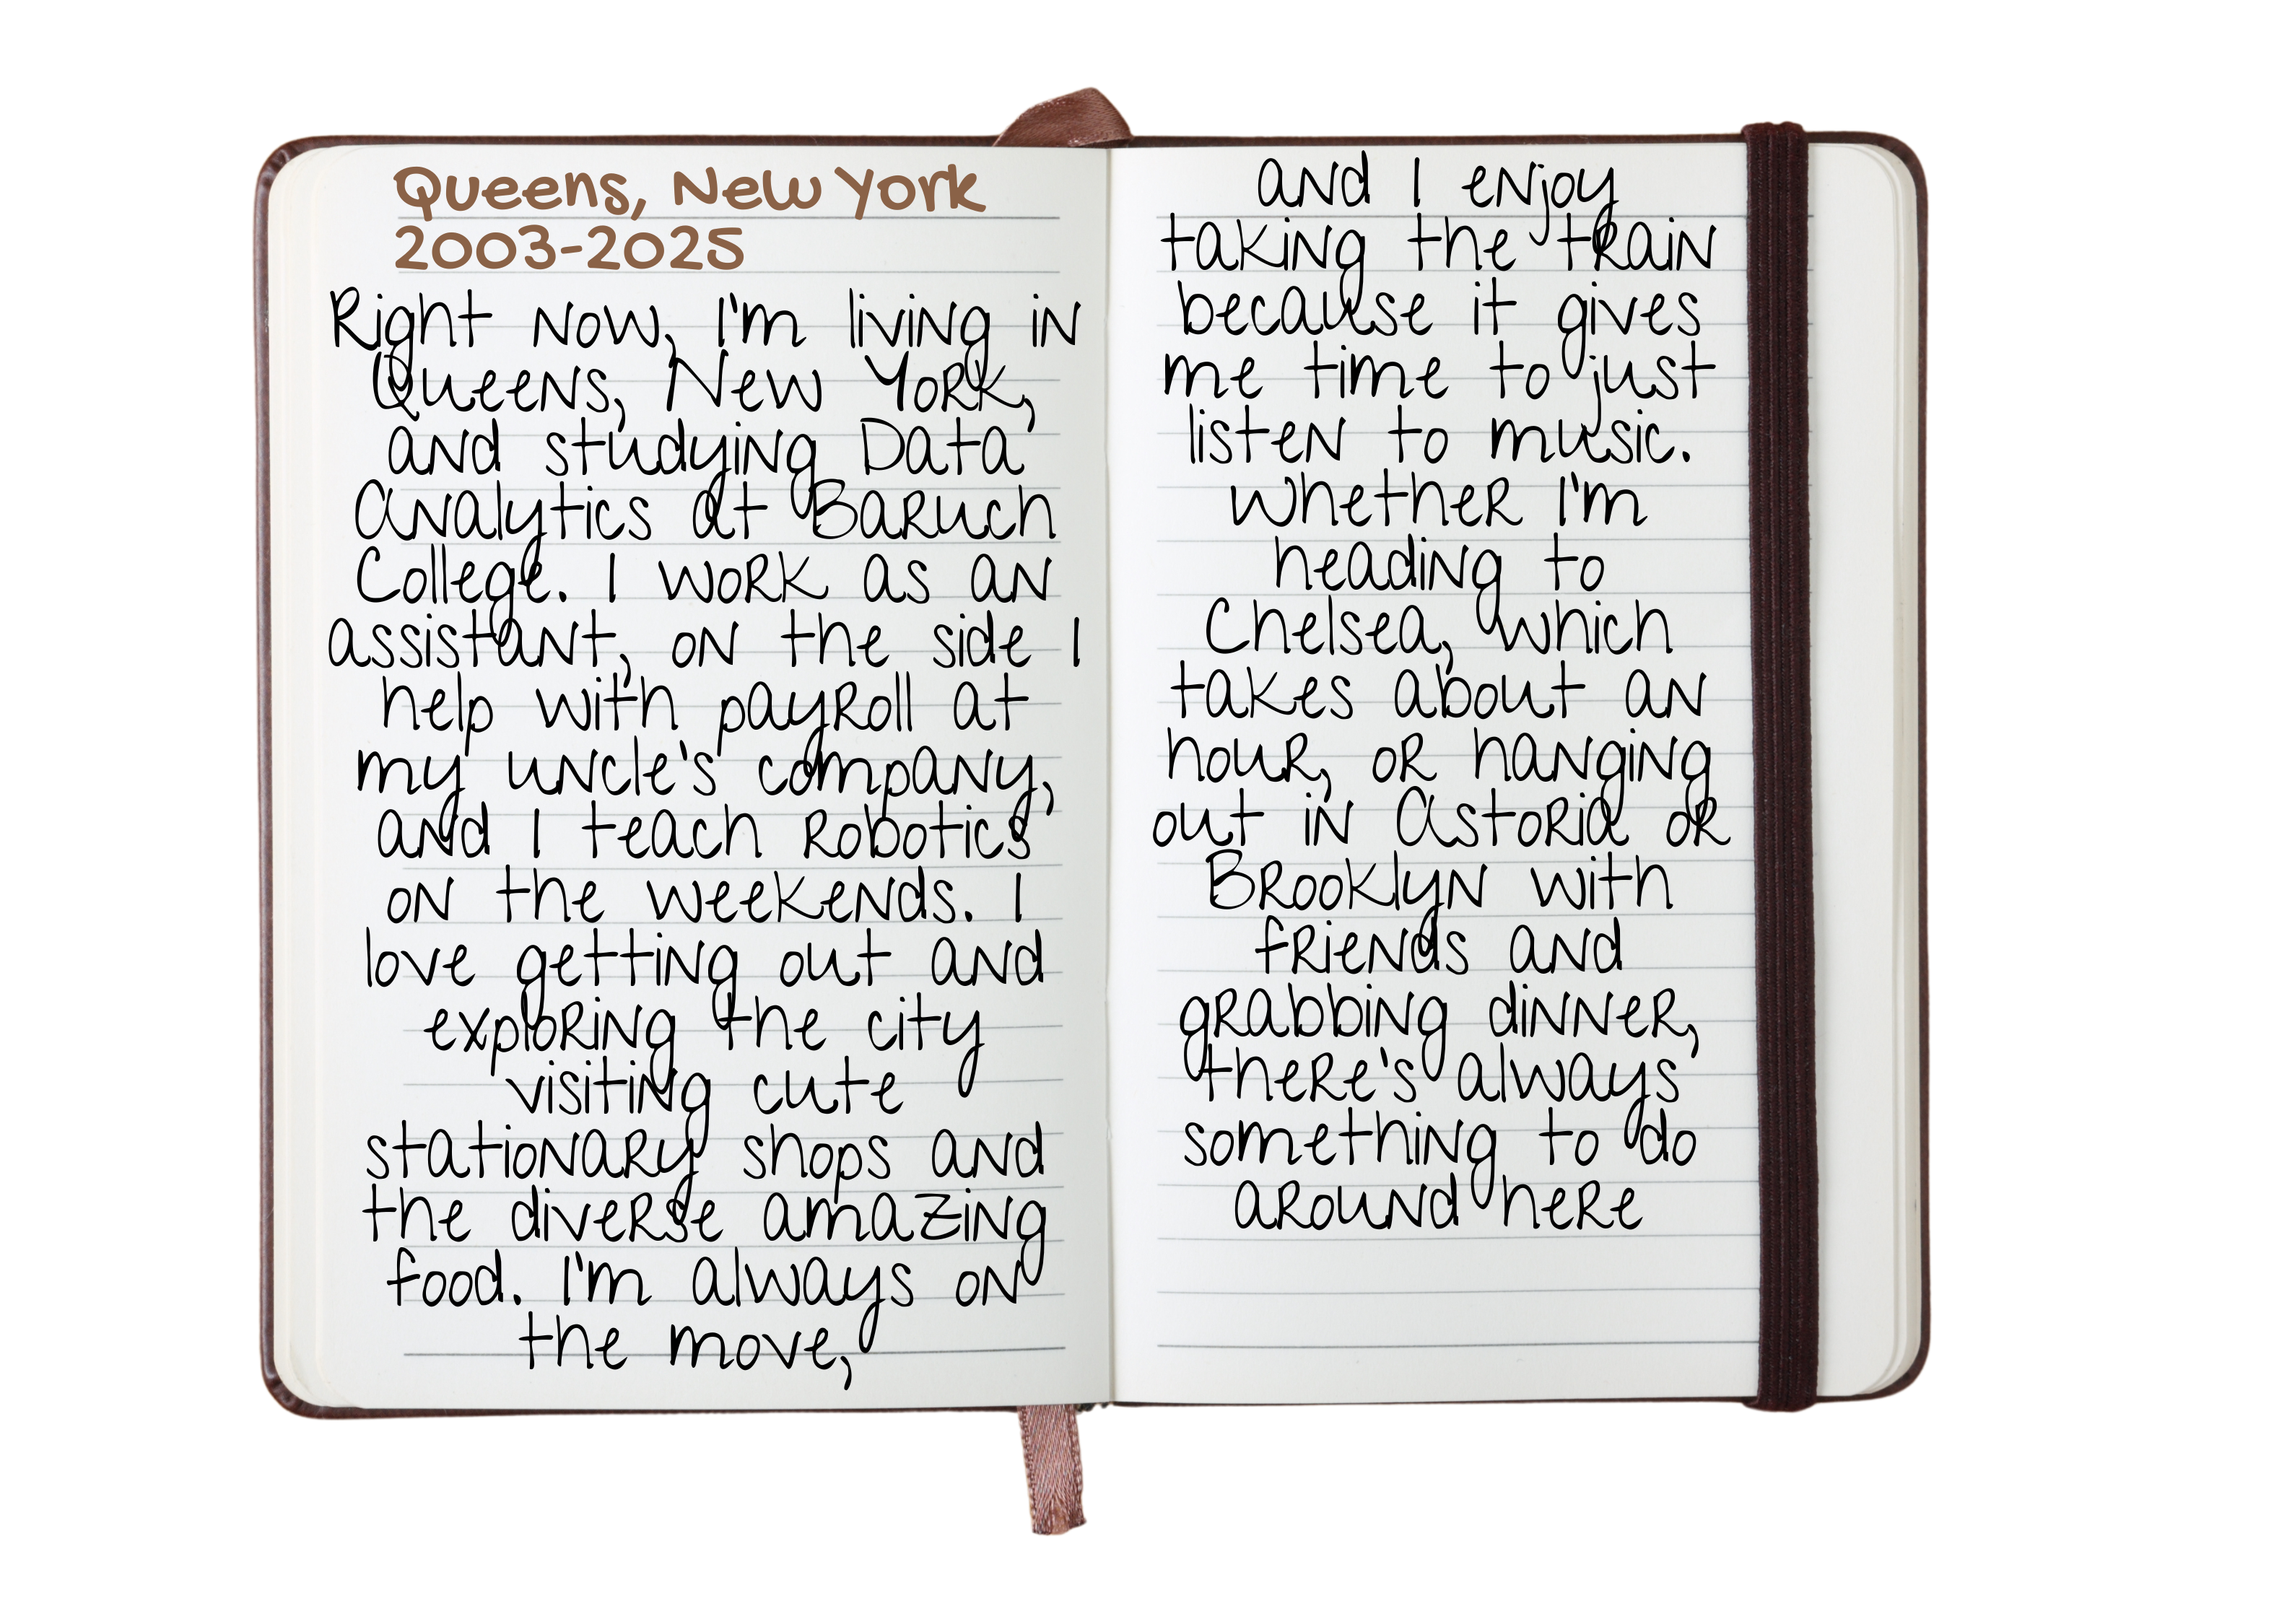 Queens, New York
2003-2025
Right now, I'm living in
Queens, New York,
and studying Data
Analytics at Baruch
College. I work as an
assistant, on the side I
help with payroll at
my uncle's company,
and I teach robotics
on the weekends. I
love getting out and
exploring the city
visiting cute
stationary shops and
the diverse amazing
food. I'm always on
the move,
and I enjoy
taking the train
because it gives
me time to just
listen to music.
Whether I'm
heading to
Chelsea, which
takes about an
hour, or hanging
out in Astoria or
Brooklyn with
friends and
grabbing dinner,
there's always
something to do
around here